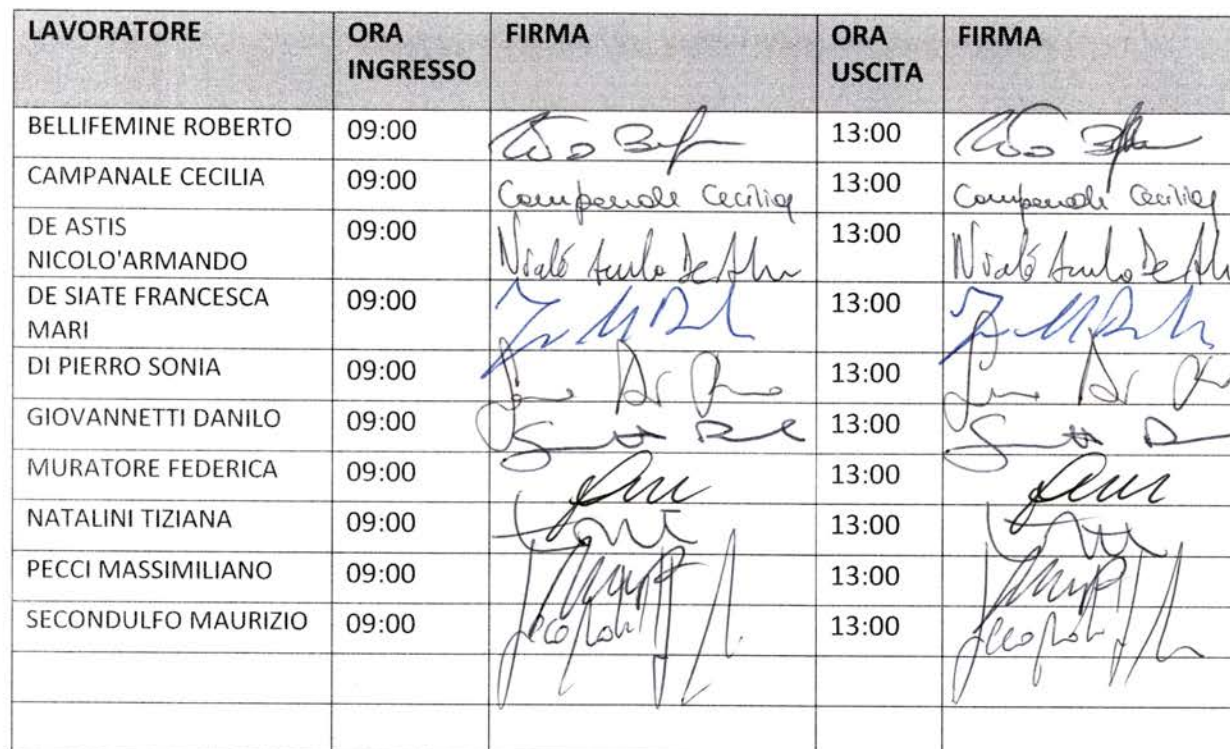 LAVORATORE ORA INGRESSO FIRMA ORA USCITA FIRMA
BELLIFEMINE ROBERTO 09:00 13:00
CAMPANALE CECILIA 09:00 Campanale Cecilia 13:00 Campanale Cecilia
DE ASTIS NICOLO'ARMANDO 09:00 13:00
DE SIATE FRANCESCA MARI 09:00 13:00
DI PIERRO SONIA 09:00 13:00
GIOVANNETTI DANILO 09:00 13:00
MURATORE FEDERICA 09:00 13:00
NATALINI TIZIANA 09:00 13:00
PECCI MASSIMILIANO 09:00 13:00
SECONDULFO MAURIZIO 09:00 13:00